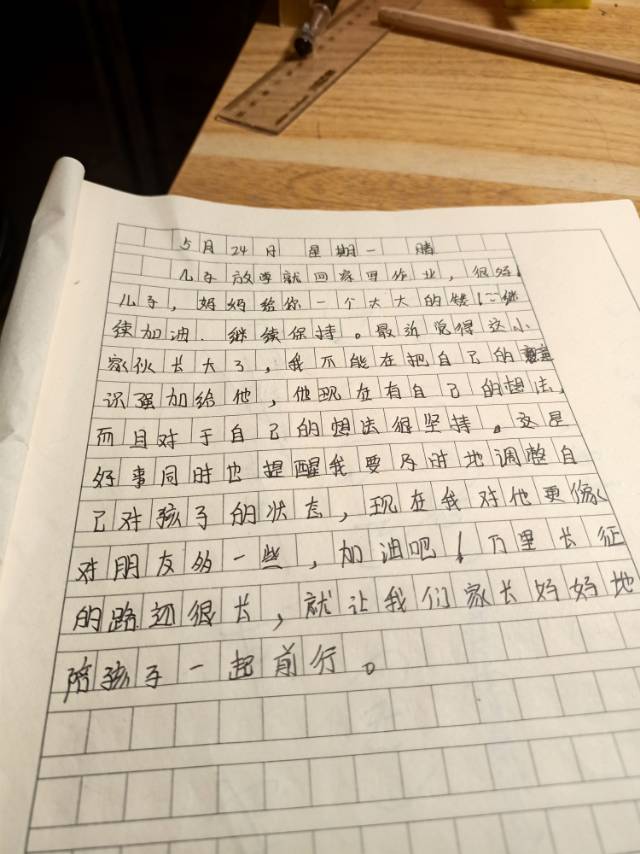 5月24日 星期一 晴
儿子放学就回家写作业，很好！
儿子，妈妈给你一个大大的赞！继
续加油．继续保持。最近觉得这小
家伙长大了，我不能在把自己的意
识强加给他，他现在有自己的想法，
而且对于自己的想法很坚持。这是
好事同时也提醒我要及时地调整自
己对孩子的状态，现在我对他更像
对朋友多一些，加油吧！万里长征
的路还很长，就让我们家长好好地
陪孩子一起前行。